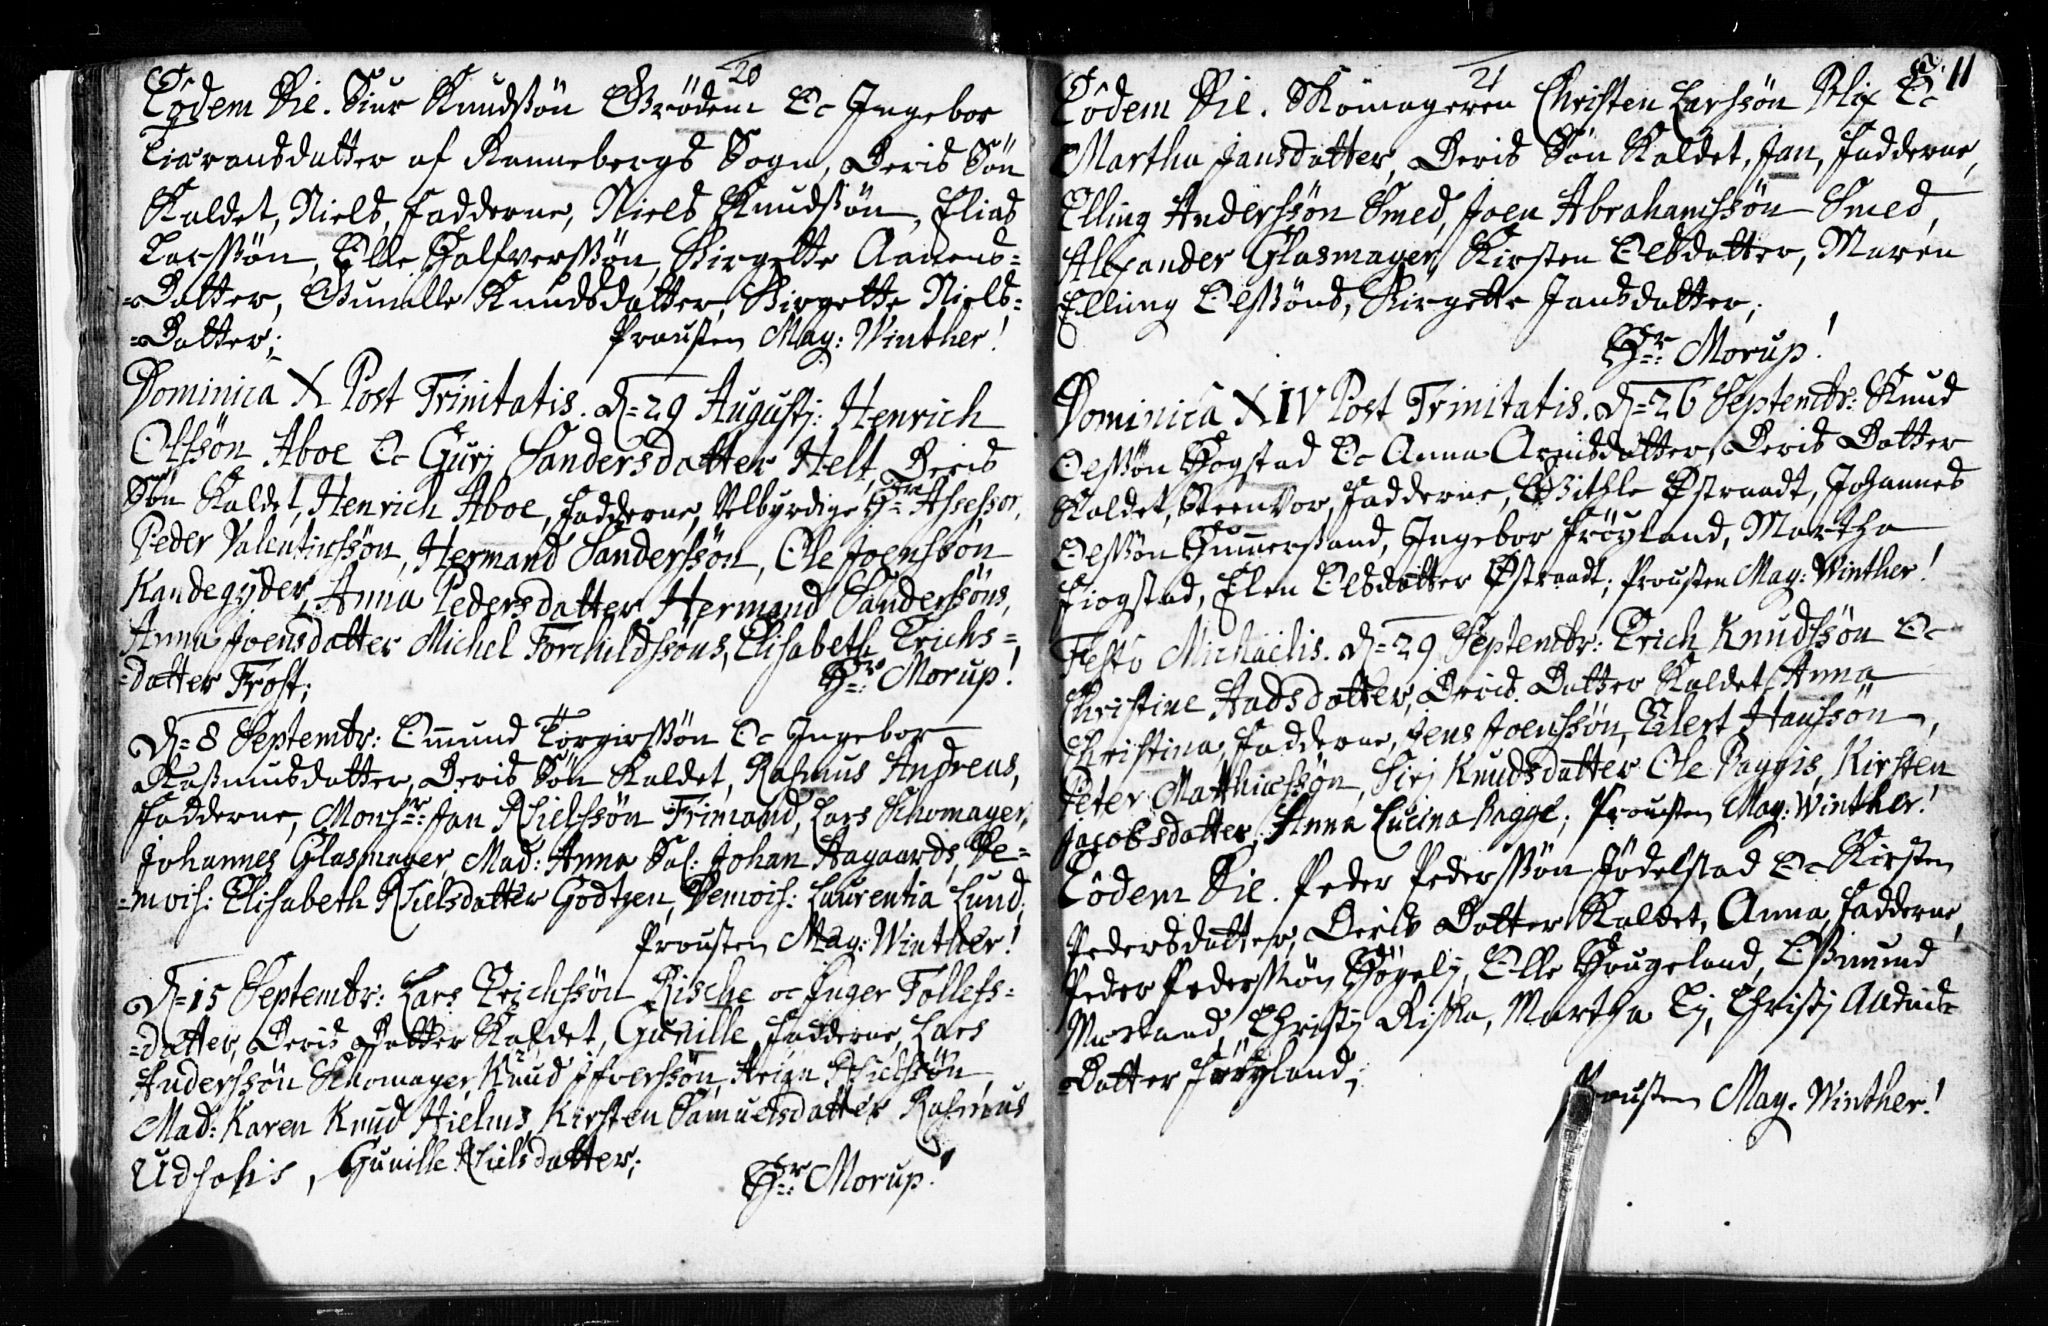 20
Eodem Die. Siur Knudssøn Grødem Oc Ingebor
Tiaransdatter af Rannebergs Sogn, Deris Søn
Kaldet, Niels, Fadderne, Niels Knudssøn, Elias
Larssøn, Olle Halfverssøn, Birgette Aanens-
-Datter, Gunille Knudsdatter, Birgette Niels-
-Datter;
Prousten May: Winther!
Dominica X Post Trinitatis. D=29 Augustj: Henrich
Olssøn Aboe Oc Gurj Sandersdatter Helt, Deris
Søn Kaldet, Henrich Aboe, Fadderne, Velbyrdige Hr Assessor,
Peder Valentinssøn, Hermand Sanderssøn, Ole Joenssøn
Kandegyder, Anna Pedersdatter Hermand Sanderssøns,
Anna Joensdatter Michel Torchildssøns, Elisabeth Erichs-
-datter Frost;
Hr: Morup!
D=8 Septembr: Omund Torgirssøn Oc Ingebor
Rasmusdatter, Deris Søn Kaldet, Rasmus Andreas,
Fadderne, Monsr: Jan Nielssøn Frimand, Lars Schomager,
Johannes Glasmager, Mad: Anna Sal: Johan Aagaards, De-
-mois: Elisabeth Nielsdatter Godtzen, Demois: Laurentia Lund;
Prousten May: Winther!
D=15 Septembr: Lars Erichssøn Rische oc Inger Tollefs-
-datter, Deris Datter Kaldet, Gunille, Fadderne, Lars
Anderssøn Schomager, Knud Ifverssøn, Nielssøn,
Mad: Karen Knud Hielms, Kirsten Samuelsdatter Rasmus
Udsohis, Gunille Nielsdatter;
Hr: Morup!
21
11
Eodem Die. Skomageren Christen Larssøn Blix Oc
Martha Jansdatter, Deris Søn Kaldet, Jan, Fadderne,
Elling Anderssøn Smed, Joen Abrahamssøn Smed,
Alexander Glasmager, Kirsten Olsdatter, Maren
Elling Olssøns, Birgette Jansdatter;
Hr: Morup!
Dominica XIV Post Trinitatis. D=26 Septembr: Knud
Olssøn Hogstad Oc Anna Arnisdatter, Deris Datter
Kaldet, Steenvor, Fadderne, Githle Østraadt, Johannes
Olssøn Hummersand, Ingebor Frøyland, Martha
Fiogstad, Elen Olsdatter Østraadt; Prousten May: Winther!
Festo Michaëlis. D=29 Septembr: Erich Knudssøn Oc
Christine Aadsdatter, Deris Datter Kaldet, Anna
Christina, Fadderne, Jens Joenssøn, Eilert Hanssøn,
Peter Matthiassøn, Sirj Knudsdatter Ole Baggis, Kirsten
Jacobsdatter, Anna Lucina Bagge; Prousten May: Winther!
Eodem Die. Peder Pederssøn Jødelstad Oc Kirsten
Pedersdatter, Deris Datter Kaldet, Anna, Fadderne,
Peder Pederssøn Høyelj, Olle Hougeland, Osmund
Mosland, Christj Riska, Martha Lj, Christj
-Datter Frøyland;
Prousten May: Winther!